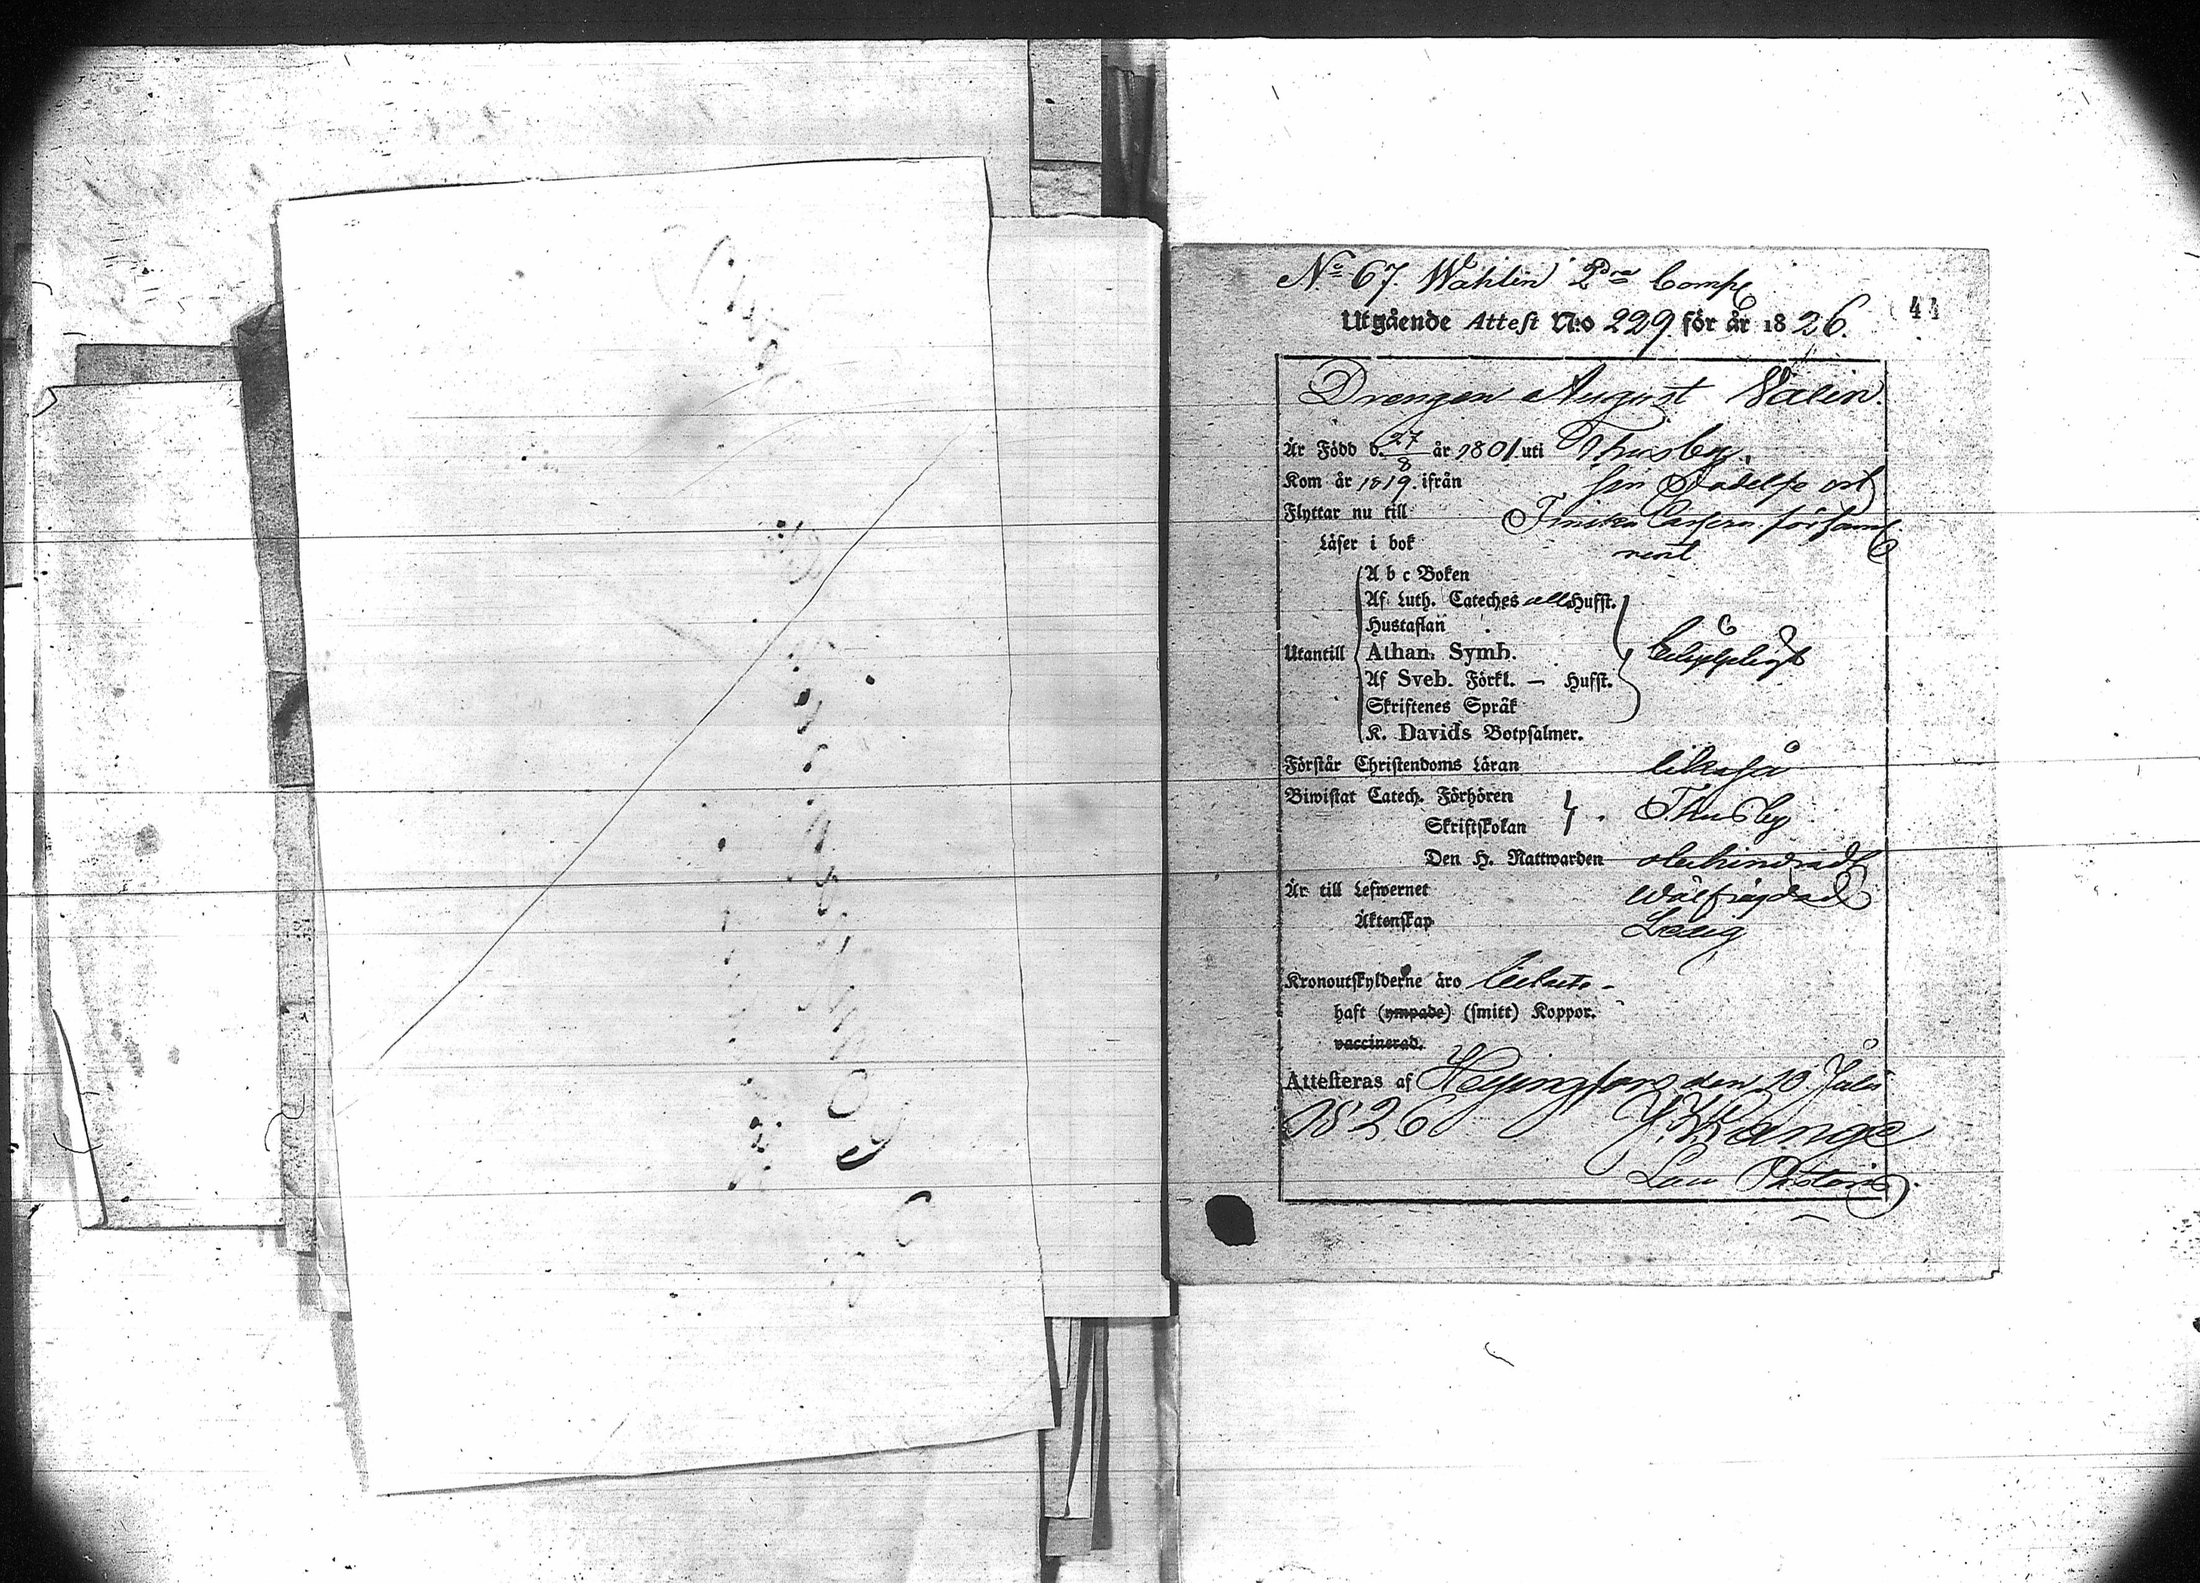 No 67. Wahlin 2dra Comp
44
Utgående Attest N:o 229 för år 1826.
Drengen August Walin.
Är Född d. 27/8 år 1801. uti Thusby.
Kom år 1819. ifrån sin Födelse ort
Flyttar nu till Finska Casern församl
Läser i bok rent
A b c Boken
Af Luth. Cateches alla Hufst.
Hustaflan
Utantill Athan. Symb.
Af Sveb. Förkl. — Hufst.
Skriftenes Språk
K. Davids Botpsalmer.
Förstår Christendoms Läran likaså
Biwistat Catech. Förhören
Skriftskolan Thusby
Den H. Nattwarden obehindrad
Är till Lefwernet wälfrägdad
Äktenskap Ledig
Kronoutskylderne äro
haft (ympade) (smitt) Koppor.
vaccinerad.
Attesteras af Helsingfors den 10 Juli
1826